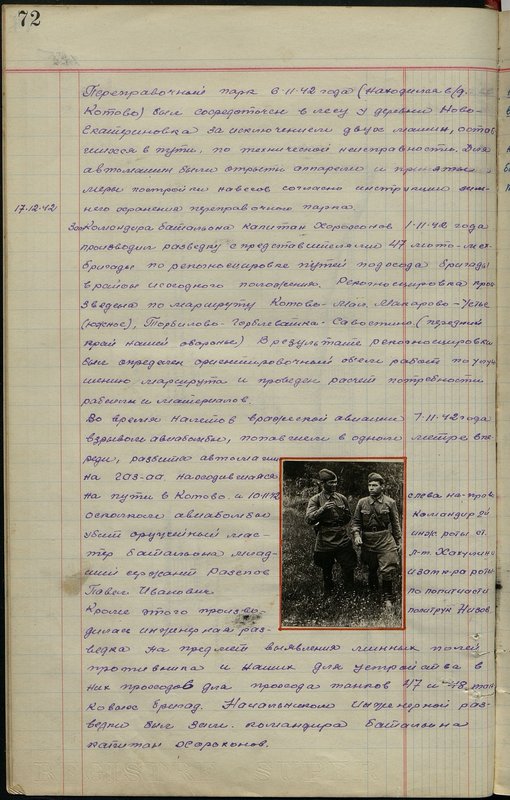 72
Переправочный парк 6.11.42 года (находился в/д.
Котово) был сосредоточен в лесу у деревни Ново-
Екатериновка за исключением двух машин, остав
шихся в пути, по технической неисправности. Для
автомашин были отрыты аппарели и приняты
меры постройки навесов согласно инструкции зим-
него хранения переправочного парка.
17.12.42
Зам. Командира батальона капитан Хороконов 1.11.42 года
производил разведку с представителями 47 мото-мех-
бригады по рекогносцировке путей подхода бригады
в район исходного положения. Рекогносцировка про-
зведена по маршруту Котово-Мал. Макарово-Устье
(южное), Торбилово- -Савостино (передний
край нашей обороны) В результате рекогносцировки
был определен ориентировочный объем работ по улуч
шению маршрута и проведен расчет потребности
рабсилы и материалов.
Во время налетов вражеской авиации 7.11.42 года
взрывом авиабомбы, попавшей в одном метре впе-
реди, разбита автомашина
на ГАЗ-АА находившаяся
на пути в Котово. и 10.11.42
осколком авиабомбы
убит оружейный мас-
тер батальона млад-
ший сержант
Павел Иванович
Кроме этого произво-
дилась инженерная раз-
ведка на предмет выявления минных полей
противника и наших для устройства в
них проходов для прохода танков 47 и 48 тан
ковых бригад. Начальником инженерной раз-
ведки был зам. командира батальона
капитан Хороконов.
слева на-прав
командир 2й
инж роты ст.
л-т. Хакулин и
и зам к-ра роты
по политчасти
политрук